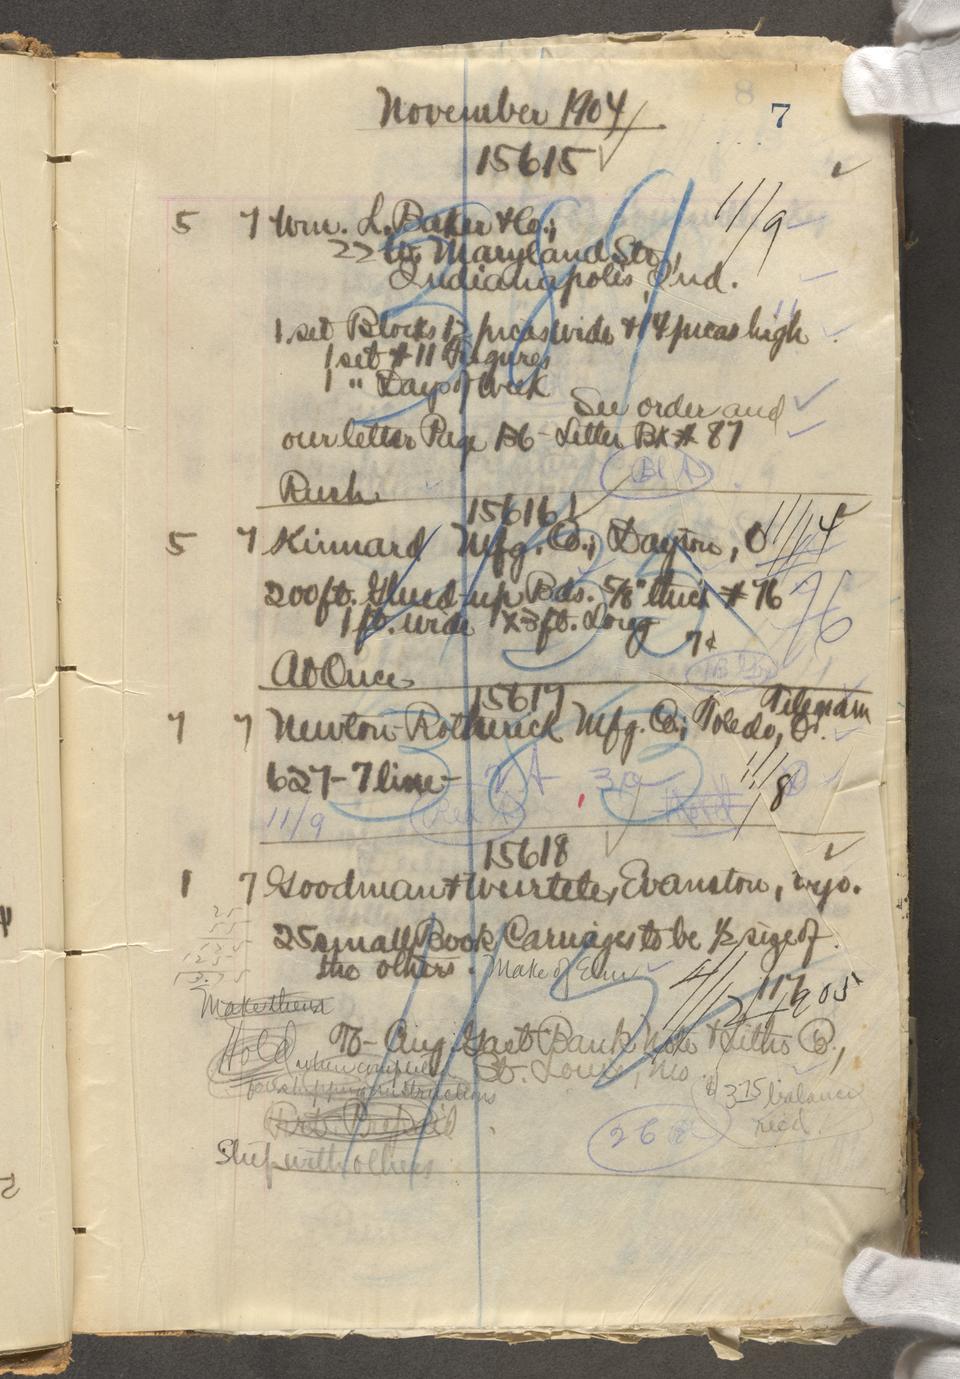 November 1904
7
15615
5 7 Wm. L. Baker & Co.,
11/9
22 W. Maryland St.,
Indianapolis, Ind.
1 set Blocks 12 picas wide & 14 picas high
1 set # 11 Figures
1 " Days of Week
See order and
our letter Page 136 - Letter Bk # 87
Rush
15616
5 7 Kinnard Mfg. Co., Dayton, O
11/14
200 ft. Glued-up Bds. 5/8" thick # 76
1 ft. wide x 3 ft. Long
7¢
At Once
15617
Telegram
7 7 Newton-Rotherick Mfg. Co., Toledo, O.
627 - 7 line -
11/8
11/9
15618
1 7 Goodman & Weurtele, Evanston, Wyo.
25 small Book Carriages to be 1/2 size of
the others. Make of Elm
1905
Make these
Hold when completed
for shipping instructions
To - Aug. Gast Bank Note & Litho Co.,
St. Louis, Mo.
$375 balance
rec'd.
Frt. Prepaid
26
Ship with others